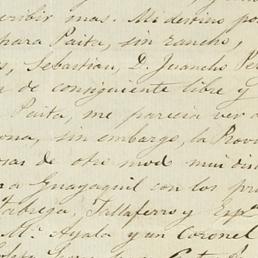 cribir mas. Mi destino po
para Paita, sin rancho,
s, Sebastian, D. Juancho Pe
de consiguiente libre y
Paita, me parecia ver a
ona, sin embargo, la Provi
osas de otro modo mui di
ra Guayaquil con los pr
Fabrega, Tallaferro y Esp
M.ª Ayala y un Coronel